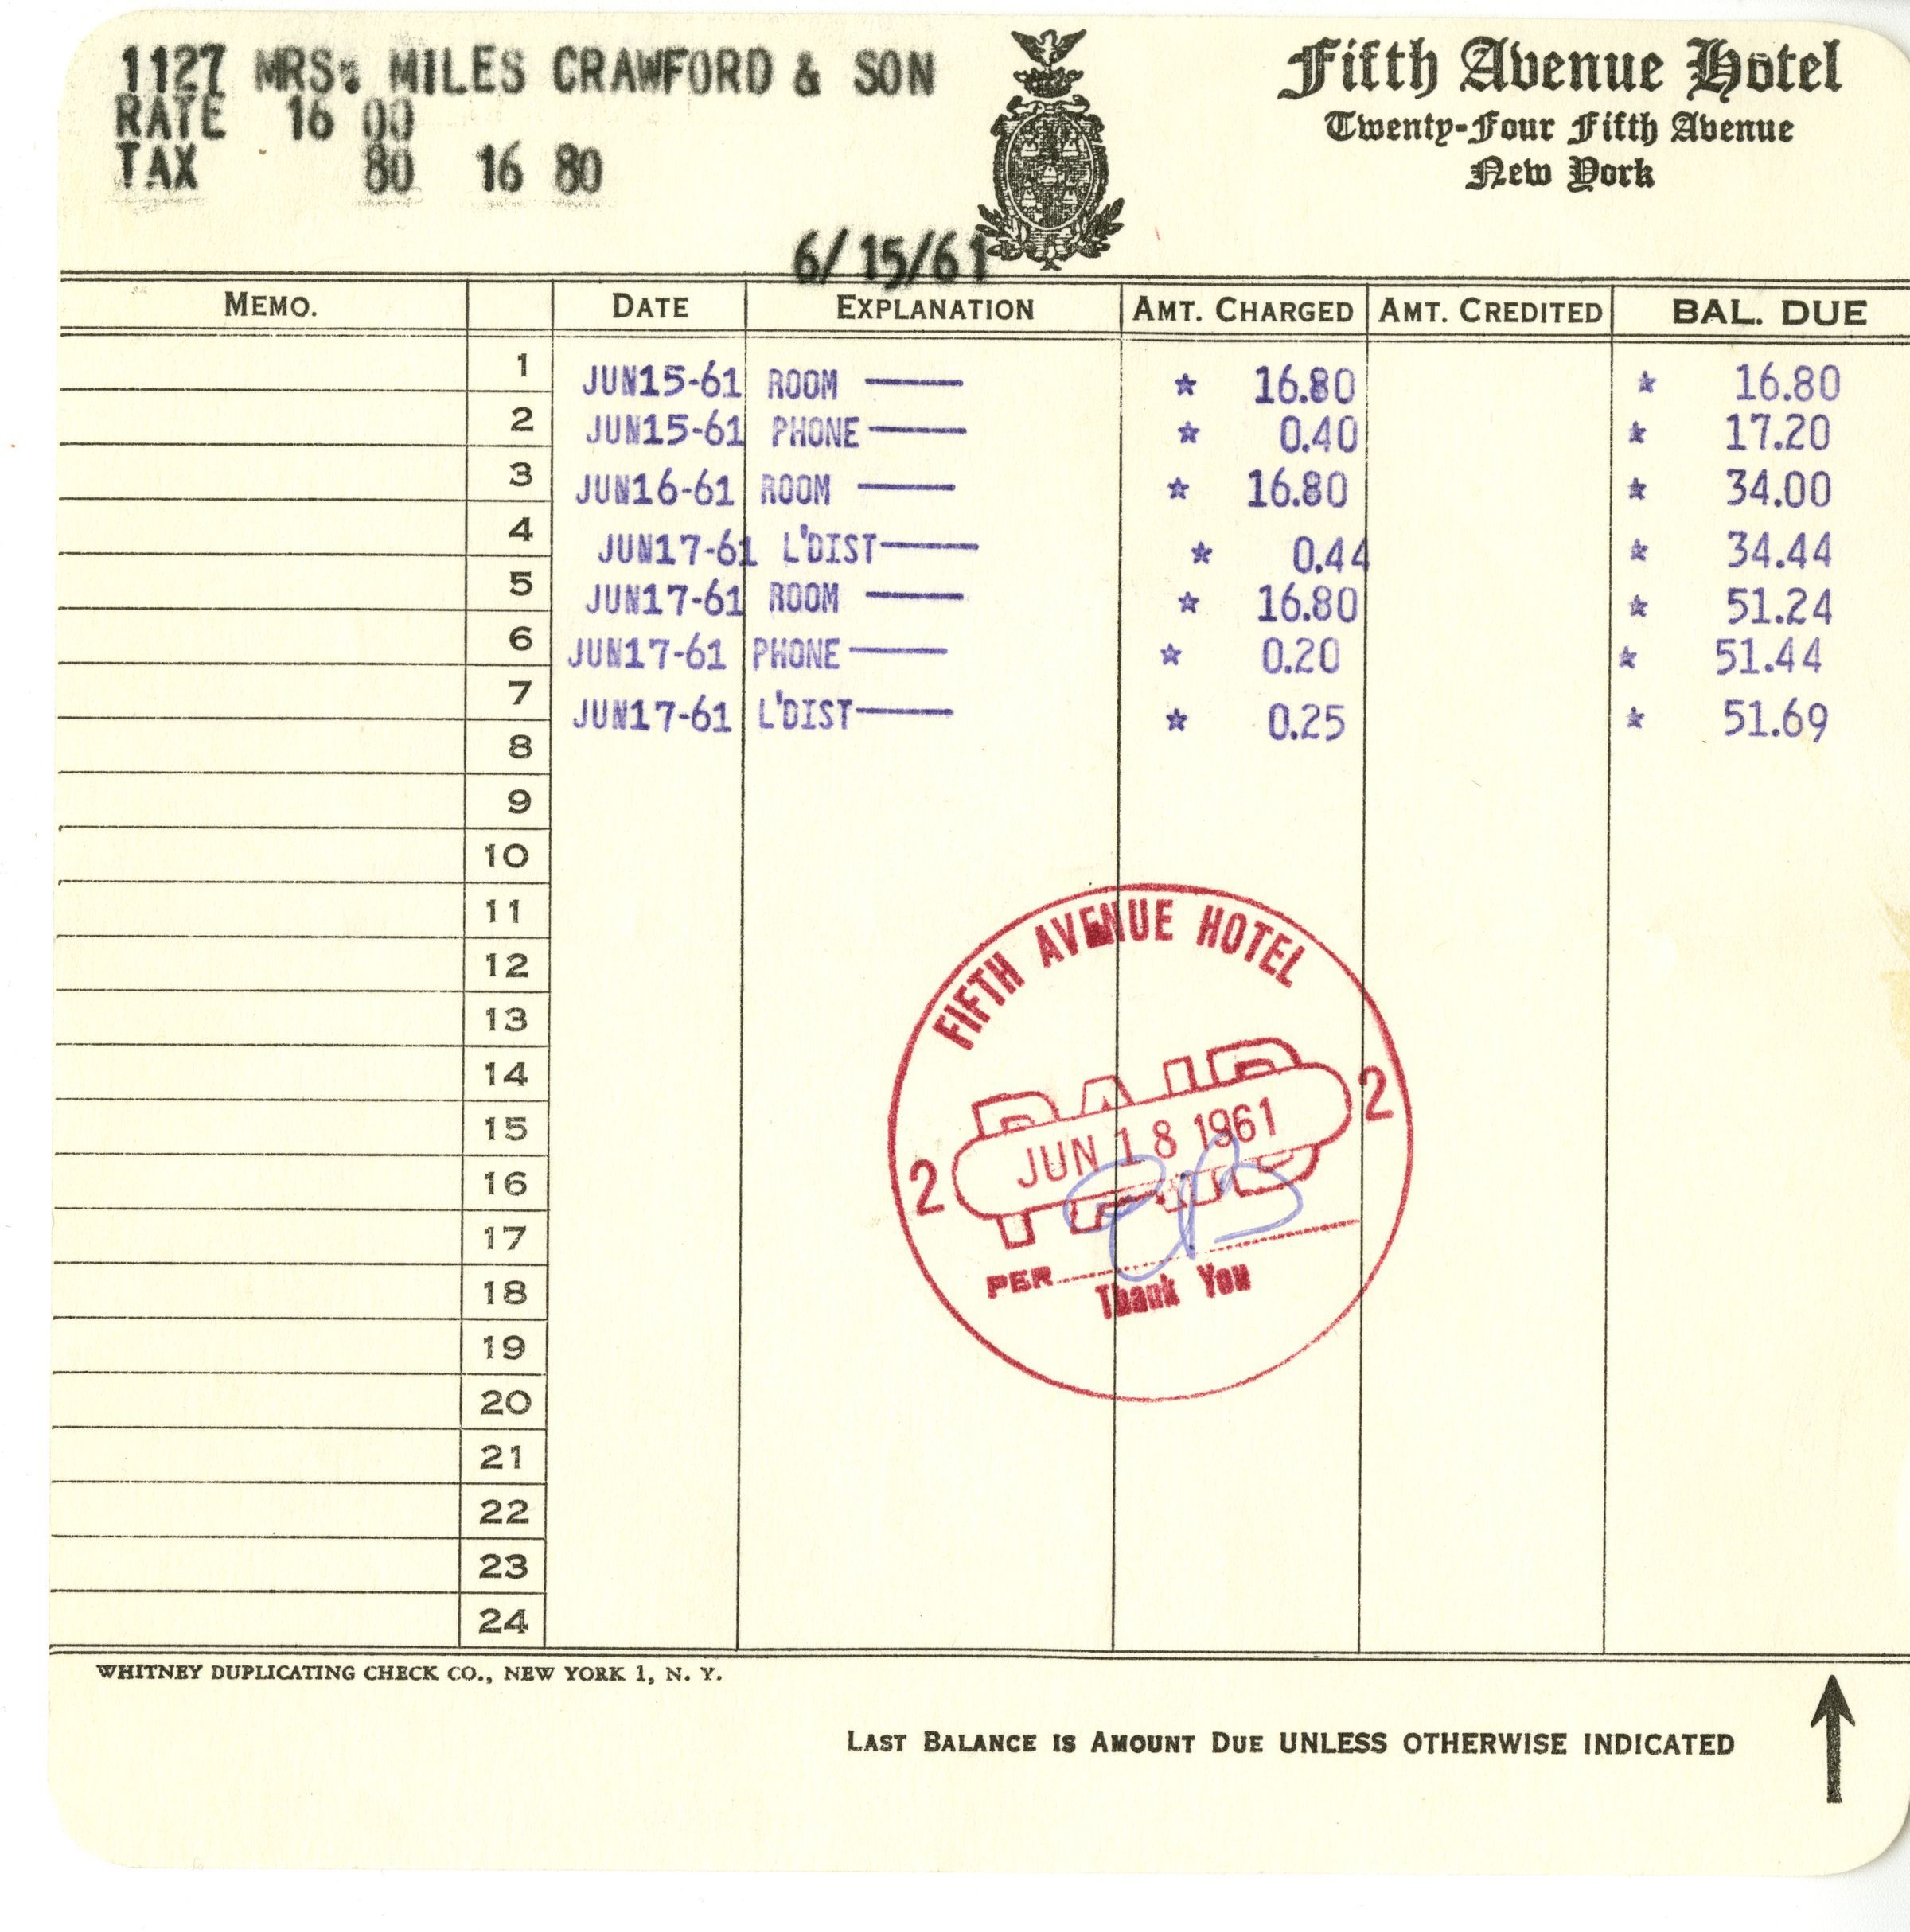 1127 MRS. MILES CRAWFORD & SON
RATE 16 00
TAX 80 16 80
Fifth Avenue Hotel
Twenty-Four Fifth Avenue
New York
6/15/61
MEMO. DATE EXPLANATION AMT. CHARGED AMT. CREDITED BAL. DUE
1 JUN15-61 ROOM —— * 16.80 * 16.80
2 JUN15-61 PHONE —— * 0.40 * 17.20
3 JUN16-61 ROOM —— * 16.80 * 34.00
4 JUN17-61 L'DIST —— * 0.44 * 34.44
5 JUN17-61 ROOM —— * 16.80 * 51.24
6 JUN17-61 PHONE —— * 0.20 * 51.44
7 JUN17-61 L'DIST —— * 0.25 * 51.69
8
9
10
11
12
13
14
15
16
17
18
19
20
21
22
23
24
FIFTH AVENUE HOTEL
PAID
2 JUN 18 1961 2
PER
Thank You
WHITNEY DUPLICATING CHECK CO., NEW YORK 1, N. Y.
LAST BALANCE IS AMOUNT DUE UNLESS OTHERWISE INDICATED